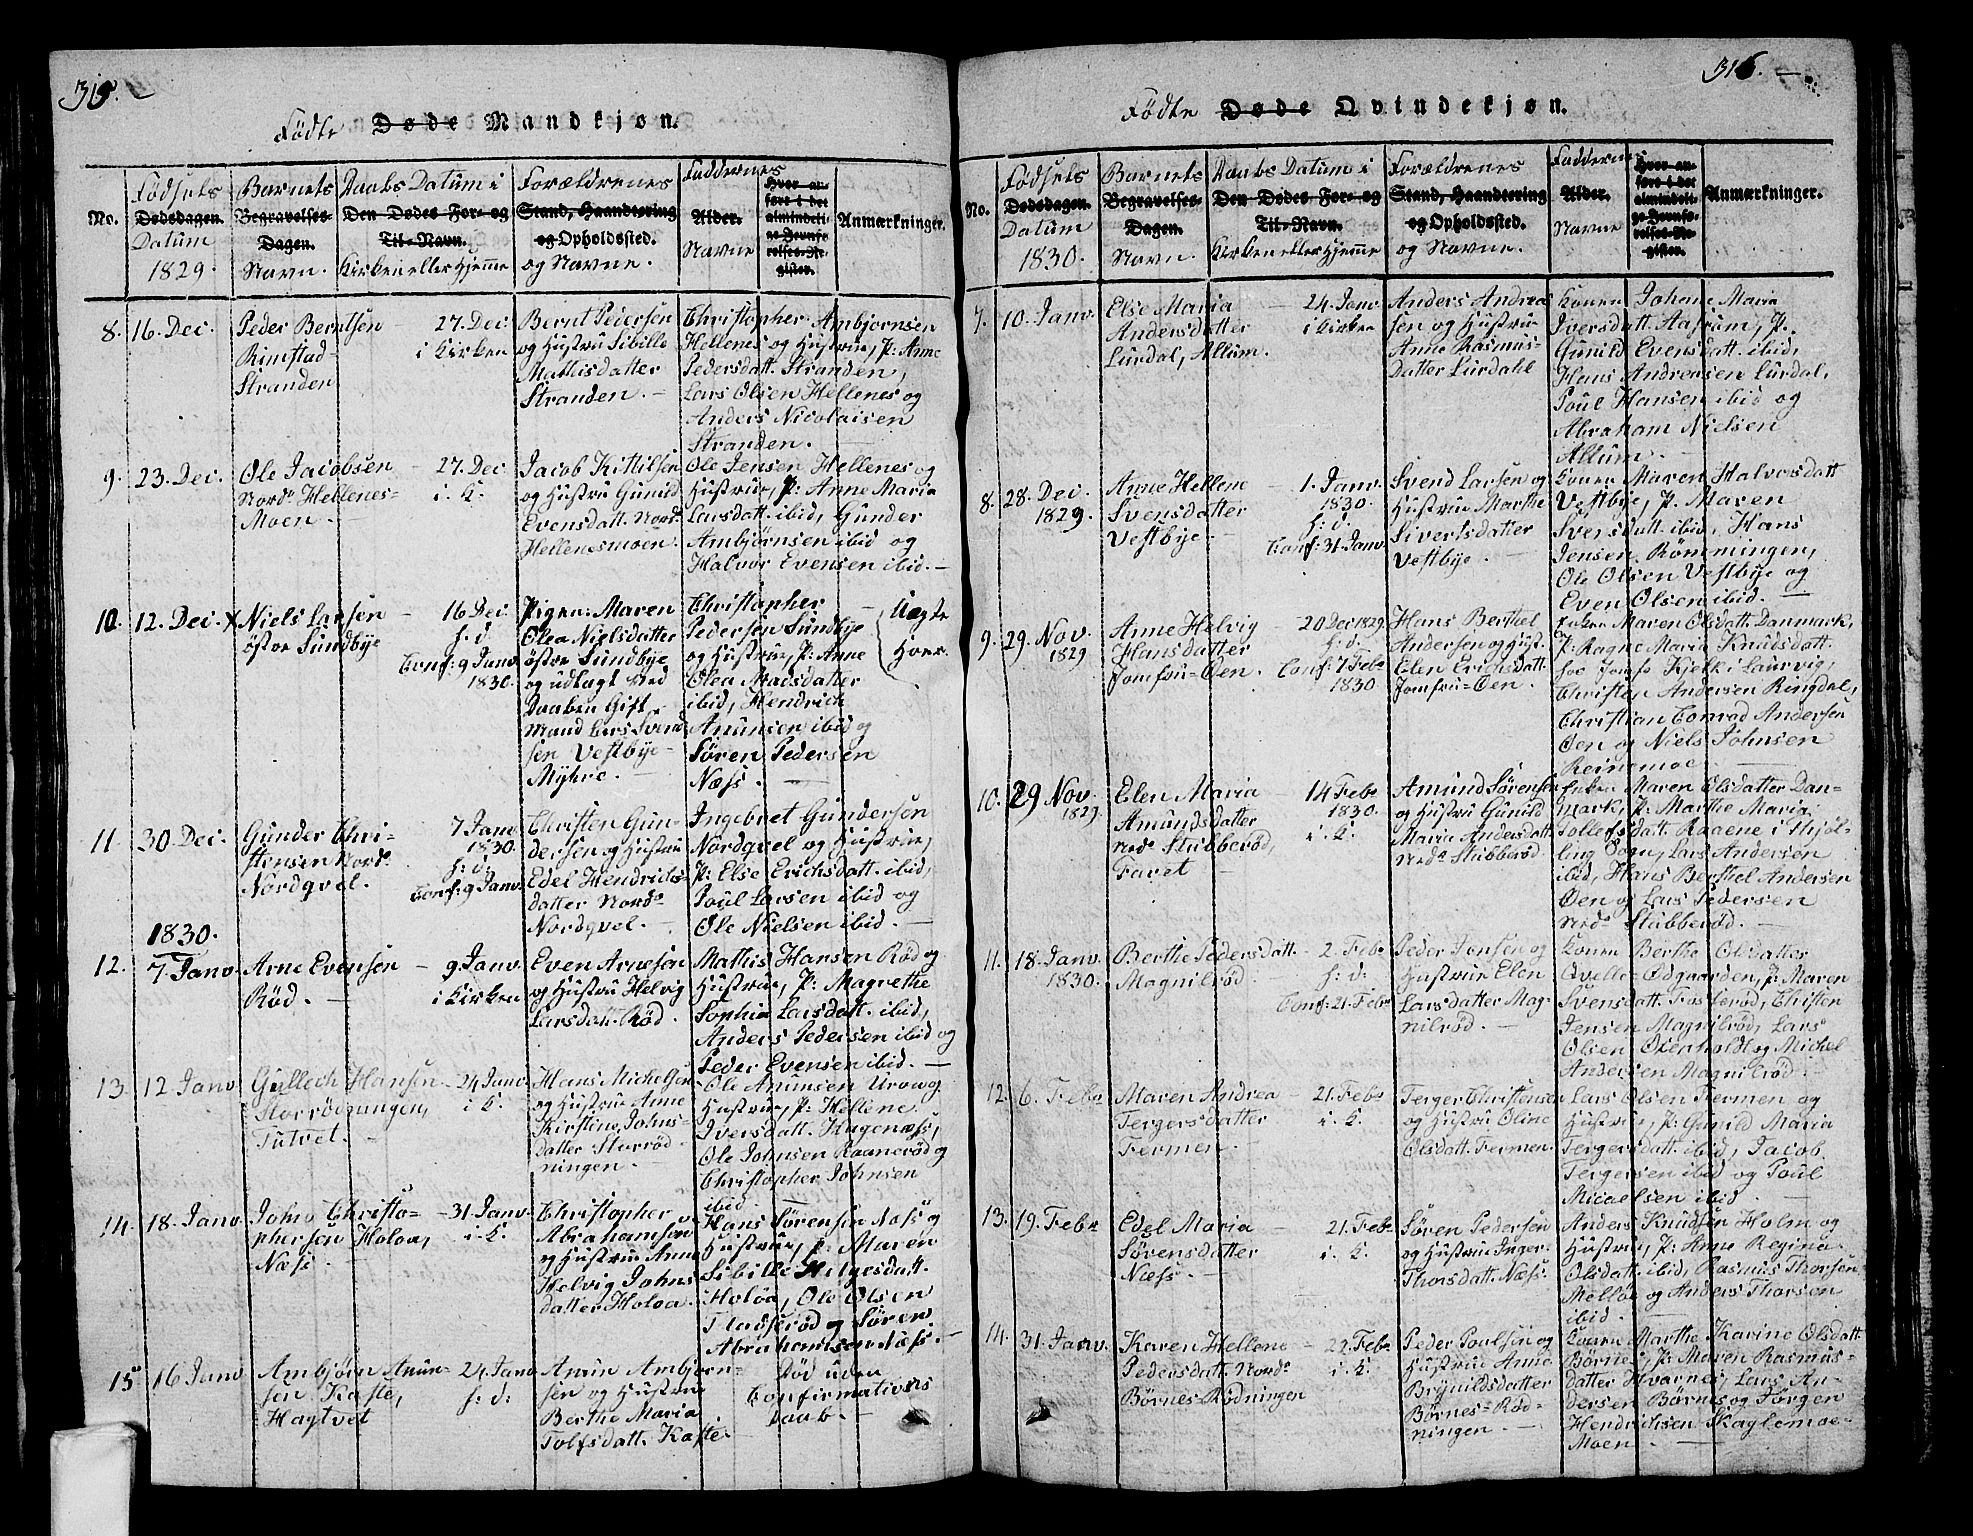 315.
Fødte Døde Mandkjøn.
No.
Fødsels
Dødsdagen.
Datum
1829
Barnets
Begravelses-
Dagen.
Navn.
Daabs Datum i
Den Dødes For- og
Til-Navn.
Kirken eller Hjemme
Forældrenes
Stand, Haandtering
og Opholdssted.
og Navne.
Faddernes
Alder.
Navne
Hvor an-
føre i det
almindeli-
ge Jevnfø-
relses-Re-
gister.
Anmærkninger.
8. 16. Dec.
Peder Berntsen
Rimstad-
Stranden
27. Dec
i Kirken
Bernt Pedersen
og Hustru Sibille
Mathisdatter
Stranden.
Christopher Ambjørnsen
Hellenes og Hustrue, P: Anne
Pedersdatt. Stranden,
Lars Olsen Hellenes og
Anders Nicolaisen
Stranden.
9. 23. Dec.
Ole Jacobsen
Nord: Hellenes-
Moen
27. Dec
i. K.
Jacob Kittilsen
og Hustru Gunild
Evensdatt. Nord:
Hellenesmoen.
Ole Jensen Hellenes og
Hustrue, P: Anne Maria
Larsdatt. ibid, Gunder
Ambjørnsen ibid og
Halvor Evensen ibid.
10. 12. Dec. X
Niels Larsen
østre Sundbye
16 Dec
h: d
Conf: 9 Janv.
1830.
Pigen: Maren
Olea Nielsdatter
østre Sundbye
og udlagt ved
Daaben Gift
Mand Lars Svend
sen Vestbye-
Myhre.
Christopher
Pedersen Sundbye
og Hustrue, P: Anne
Olea Madsdatter
ibid, Hendrich
Anunsen ibid og
Søren Pedersen
Næss.
Uægte
Hver.
11. 30. Dec.
Gunder Chri-
stensen Nord:
Nordqvel.
7 Janv.
1830.
h: d:
Conf: 9 Janv.
Christen Gun-
dersen og Hustru
Edel Hendrichs-
datter Nord:
Nordqvel.
Ingebret Gundersen
Nordqvel og Hustrue,
P: Else Erichsdatt. ibid,
Poul Larsen ibid og
Ole Nielsen ibid.
1830.
12. 7. Janv.
Arne Evensen
Rød.
9 Janv.
i Kirken
Even Arnesen
og Hustru Helvig
Larsdatt. Rød.
Mathis Hansen Rød og
Hustrue, P: Magrethe
Sophia Larsdatt. ibid,
Anders Pedersen ibid og
Peder Evensen ibid.
13. 12 Janv
Gullech Hansen
Storrødningen,
Tutvet.
24 Janv
i K.
Hans Michelsen
og Hustru Anne
Kirstine Johns-
datter Storrød-
ningen.
Ole Anunsen Uraw og
Hustrue, P: Hellene
Iversdatt. Hagenæss,
Ole Johnsen Raanerød og
Christopher Johnsen
ibid
14. 18. Janv
John Christo-
phersen Holoa,
Næss.
31. Janv.
i K.
Christopher
Abrahamsen
og Hustru Anne
Helvig Johns
datter Holoa.
Hans Sørensen Næss og
Hustrue, P: Maren
Sibille Helgesdatt.
Holøa, Ole Olsen
Fladserød og Søren
Abrahamsen Næss.
15 16 Janv
Ambjørn Anun-
sen Kaste,
Hagtvet
24. Janv
h: d:
Anun Ambjørn-
sen og Hustru
Berthe Maria
Tolfsdatt. Kaste.
Død uden
Confirmations
Daab.
316.
Fødte Døde Qvindekjøn.
No.
Fødsels
Dødsdagen.
Datum
1830.
Barnets
Begravelses-
Dagen.
Navn.
Daabs Datum i
Den Dødes For- og
Til-Navn.
Kirken eller Hjemme
Forældrenes
Stand, Haandtering
og Opholdssted.
og Navne.
Faddernes
Alder.
Navne
Hvor an-
føre i det
almindeli-
ge Jevnfø-
relses-Re-
gister.
Anmærkninger.
7. 10. Janv.
Else Maria
Andersdatter
Lurdal, Allum.
24. Janv
i Kirken
Anders Andrea
sen og Hustrue
Anne Rasmus-
Datter Lurdahl
Konen Johane Maria
Iversdatt. Aasrum, P.
Gunild Evensdatt. ibid,
Hans Andreasen Lurdal,
Poul Hansen ibid og
Abraham Nielsen
Allum.
8. 28. Dec.
1829.
Anne Hellene
Svensdatter
Vestbye.
1. Janv.
1830.
h: d.
Conf: 31. Janv.
Svend Larsen og
Hustrue Marthe
Sivertsdatter
Vestbye.
Konen Maren Halvorsdatt
Vestbye, P. Maren
Iversdatt. ibid, Hans
Jensen Rømmingen,
Ole Olsen Vestbye og
Even Olsen ibid.
9. 29. Nov.
1829
Anne Helvig
Hansdatter
Jomfru-Øen.
20 Dec 1829.
h: d.
Conf: 7 Febr
1830
Hans Berthel
Andersen og Hust.
Elen Erichsdatt.
Jomfru-Øen.
Enken Maren Olsdatt. Danmark,
P: Ragne Maria Knudsdatt.
hoe Jomfr Kielk i Laurvig,
Christen Andersen Ringdal,
Christian Conrad Andersen
Øen og Niels Johnsen
Reinemoe
10. 29 Nov.
1829.
Elen Maria
Amundsdatter
Ned: Stubberød,
Favet
14 Febr
1830.
i. K.
Amund Sørensen
og Hustrue Gunild
Maria Andersdatt.
Ned: Stubberød.
Enken Maren Olsdatter Dan-
mark, P: Marthe Maria
Tollefsdatt. Raaene i Thjøl-
ling Sogn, Lars Andersen
ibid, Hans Berthel Andersen
Øen og Lars Pedersen
Ned: Stubberød.
11. 18. Janv.
1830.
Berthe Pedersdatt.
Magnilrød.
2. Febr
h: d:
Conf: 21. Febr
Peder Jensen og
Hustrue Elen
Larsdatter Mag-
nilrød.
Konen Berthe Olsdatter
Qvelle-Ødgaarden, P: Maren
Svensdatt. Fosserød, Christen
Jensen Magnilrød, Lars
Olsen Oxenholt og Michel
Andersen Magnilrød.
12. 6. Febr
Maren Andrea
Tergersdatter
Fermen.
21. Febr
i. K.
Terger Christensen
og Hustru Oline
Olsdatt. Fermen.
Lars Olsen Fermen og
Hustrue, P: Gunild Maria
Tergersdatt. ibid, Jacob
Tergersen ibid og Poul
Micaelsen ibid.
13. 19. Febr
Edel Maria
Sørensdatter
Næss.
21. Febr
i. K.
Søren Pedersen
og Hustrue Inger
Thorsdatt. Næss.
Anders Knudsen Holm og
Hustrue, P: Anne Regina
Olsdatt. ibid, Rasmus Thorsen
Melløs og Anders Thorsen
ibid.
14. 31. Janv.
Karen Hellene
Pedersdatt. Nord:
Børnes-Rødningen
22. Febr
i. K.
Peder Poulsen og
Hustrue Anne
Brynildsdatter
Børnes-Rød-
ningen.
Konen Marthe Karine Olsdatt
Børnes, P: Maren Rasmus-
datter Hvarnes, Lars An-
dersen Børnes og Jørgen
Hendrichsen Kaglemoe-
Moen.